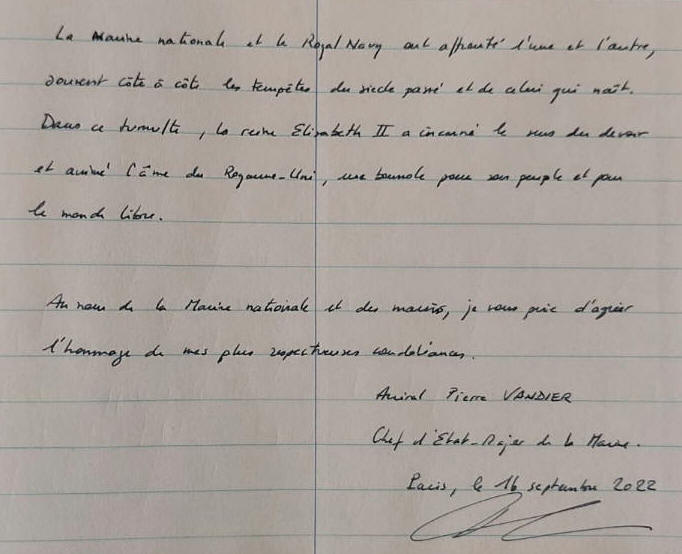 La Marine nationale et la Royal Navy ont affronté l'une et l'autre,
souvent côte à côte les tempêtes du siècle passé et de celui qui naît.
Dans ce tumulte, la reine Elisabeth II a incarné le sens du devoir
et animé l'âme du Royaume-Uni, une boussole pour son peuple et pour
le monde libre.
Au nom de la Marine nationale et des marins, je vous prie d'agréer
l'hommage de mes plus respectueuses condoléances.
Amiral Pierre VANDIER
Chef d'Etat-Major de la Marine.
Paris, le 16 septembre 2022